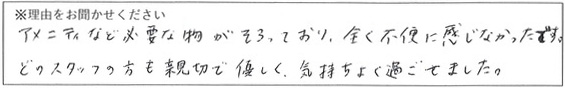 ※理由をお聞かせください
アメニティなど必要な物がそろっており、全く不便に感じなかったです。
どのスタッフの方も親切で優しく、気持ちよく過ごせました。